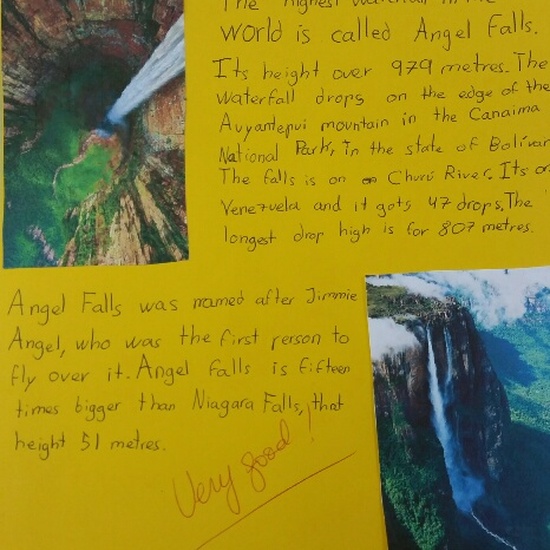 The highest waterfall in the
world is called Angel Falls.
Its height over 979 metres. The
waterfall drops on the edge of the
Auyantepui mountain in the Canaima
National Park, in the state of Bolívar
The falls is on Churú River. Its on
Venezuela and it gots 47 drops. The
longest drop high is for 807 metres.
Angel Falls was named after Jimmie
Angel, who was the first person to
fly over it. Angel falls is fifteen
times bigger than Niagara Falls, that
height 51 metres.
Very good!